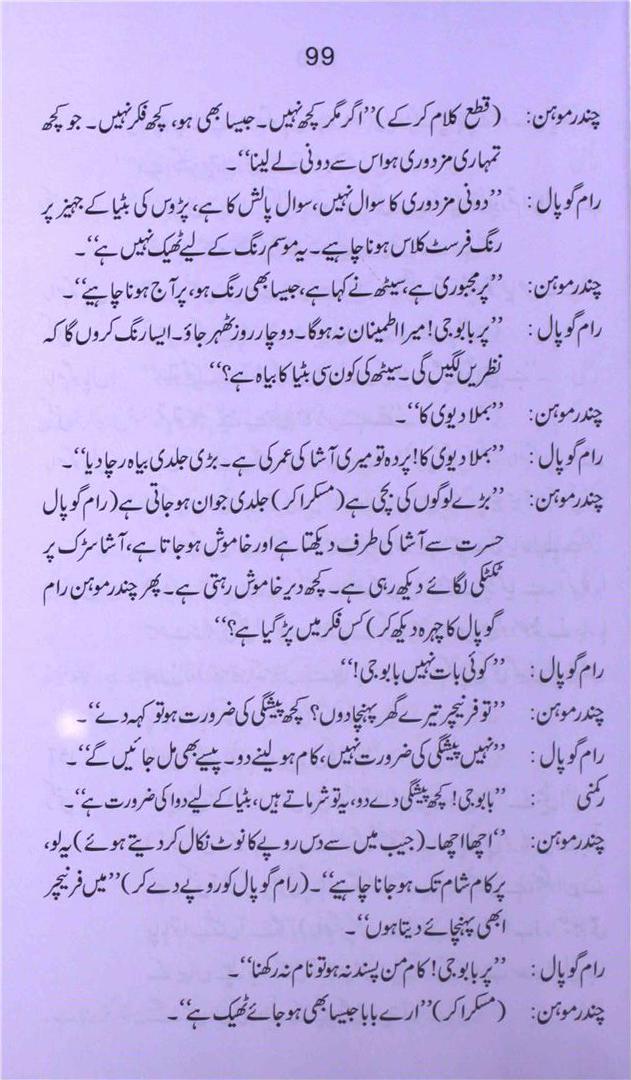 99
چندرموہن: (قطع کلام کرکے) ’’اگر مگر کچھ نہیں۔ جیسا بھی ہو، کچھ فکر نہیں۔ جو کچھ
تمہاری مزدوری ہو اس سے دونی لے لینا‘‘۔
رام گوپال: ’’دونی مزدوری کا سوال نہیں، سوال پالش کا ہے، پڑوس کی بٹیا کے جہیز پر
رنگ فرسٹ کلاس ہونا چاہیے۔ یہ موسم رنگ کے لیے ٹھیک نہیں ہے‘‘۔
چندرموہن: ’’پر مجبوری ہے، سیٹھ نے کہا ہے، جیسا بھی رنگ ہو، پر آج ہونا چاہیے‘‘۔
رام گوپال: ’’پر بابو جی! میرا اطمینان نہ ہوگا۔ دو چار روز ٹھہر جاؤ۔ ایسا رنگ کروں گا کہ
نظریں لگیں گی۔ سیٹھ کی کون سی بٹیا کا بیاہ ہے؟‘‘
چندرموہن: ’’بملا دیوی کا‘‘۔
رام گوپال: ’’بملا دیوی کا! پر وہ تو میری آشا کی عمر کی ہے۔ بڑی جلدی بیاہ رچا دیا‘‘۔
چندرموہن: ’’بڑے لوگوں کی بچی ہے (مسکرا کر) جلدی جوان ہوجاتی ہے (رام گوپال
حسرت سے آشا کی طرف دیکھتا ہے اور خاموش ہوجاتا ہے، آشا سڑک پر
ٹکٹکی لگائے دیکھ رہی ہے۔ کچھ دیر خاموش رہتی ہے۔ پھر چندر موہن رام
گوپال کا چہرہ دیکھ کر) کس فکر میں پڑ گیا ہے؟‘‘
رام گوپال: ’’کوئی بات نہیں بابو جی!‘‘
چندرموہن: ’’تو فرنیچر تیرے گھر پہنچا دوں؟ کچھ پیشگی کی ضرورت ہو تو کہہ دے‘‘۔
رام گوپال: ’’نہیں پیشگی کی ضرورت نہیں، کام ہو لینے دو۔ پیسے بھی مل جائیں گے‘‘۔
رکمنی ’’بابو جی! کچھ پیشگی دے دو، یہ تو شرماتے ہیں، بٹیا کے لیے دوا کی ضرورت ہے‘‘۔
چندرموہن: ’’اچھا اچھا۔ (جیب میں سے دس روپے کا نوٹ نکال کر دیتے ہوئے) یہ لو،
پر کام شام تک ہو جانا چاہیے‘‘۔ (رام گوپال کو روپے دے کر) ’’میں فرنیچر
ابھی پہنچائے دیتا ہوں‘‘۔
رام گوپال: ’’پر بابو جی! کام من پسند نہ ہو تو نام نہ رکھنا‘‘۔
چندرموہن: (مسکرا کر) ’’ارے بابا جیسا بھی ہو جائے ٹھیک ہے‘‘۔